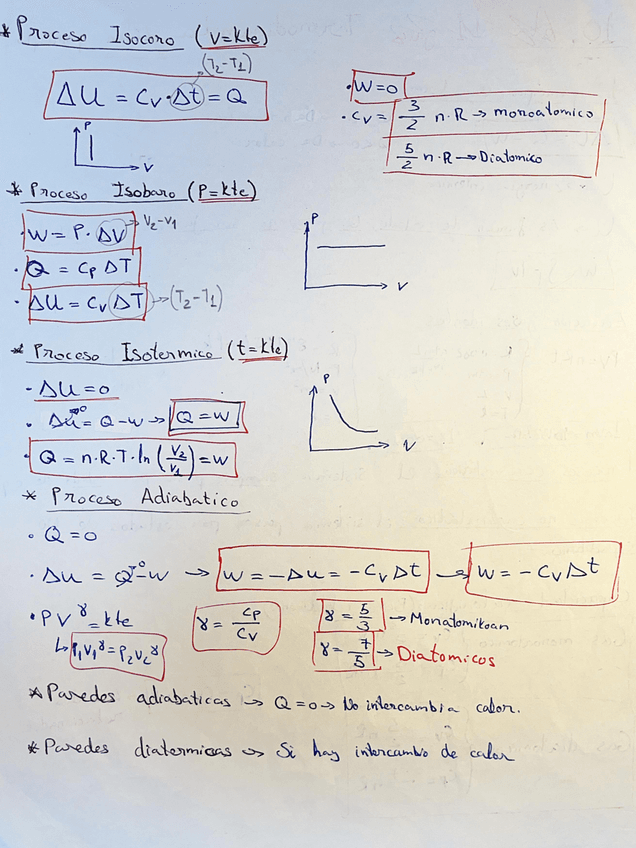 * Proceso Isocoro (V=kte)
(T₂-T₁)
ΔU = Cv·Δt = Q
P
V
· W=0
· Cv = 3/2 n·R → monoatomico
5/2 n·R → Diatomico
* Proceso Isobaro (P=kte)
· W = P·ΔV → V₂-V₁
· Q = Cp ΔT
· ΔU = Cv ΔT → (T₂-T₁)
P
V
* Proceso Isotermico (t=kte)
- ΔU=0
· ΔU⁰ = Q-W → Q=W
· Q = n·R·T·ln(V₂/V₁) = W
P
V
* Proceso Adiabatico
· Q=0
· ΔU = Q⁰-W → W = -ΔU = -Cv Δt → W = -Cv Δt
· PV^γ = kte
↳ P₁V₁^γ = P₂V₂^γ
γ = Cp/Cv
γ = 5/3 → Monatomikoan
γ = 7/5 → Diatomicos
* Paredes adiabaticas → Q=0 → No intercambia calor.
* Paredes diatermicas → Si hay intercambio de calor